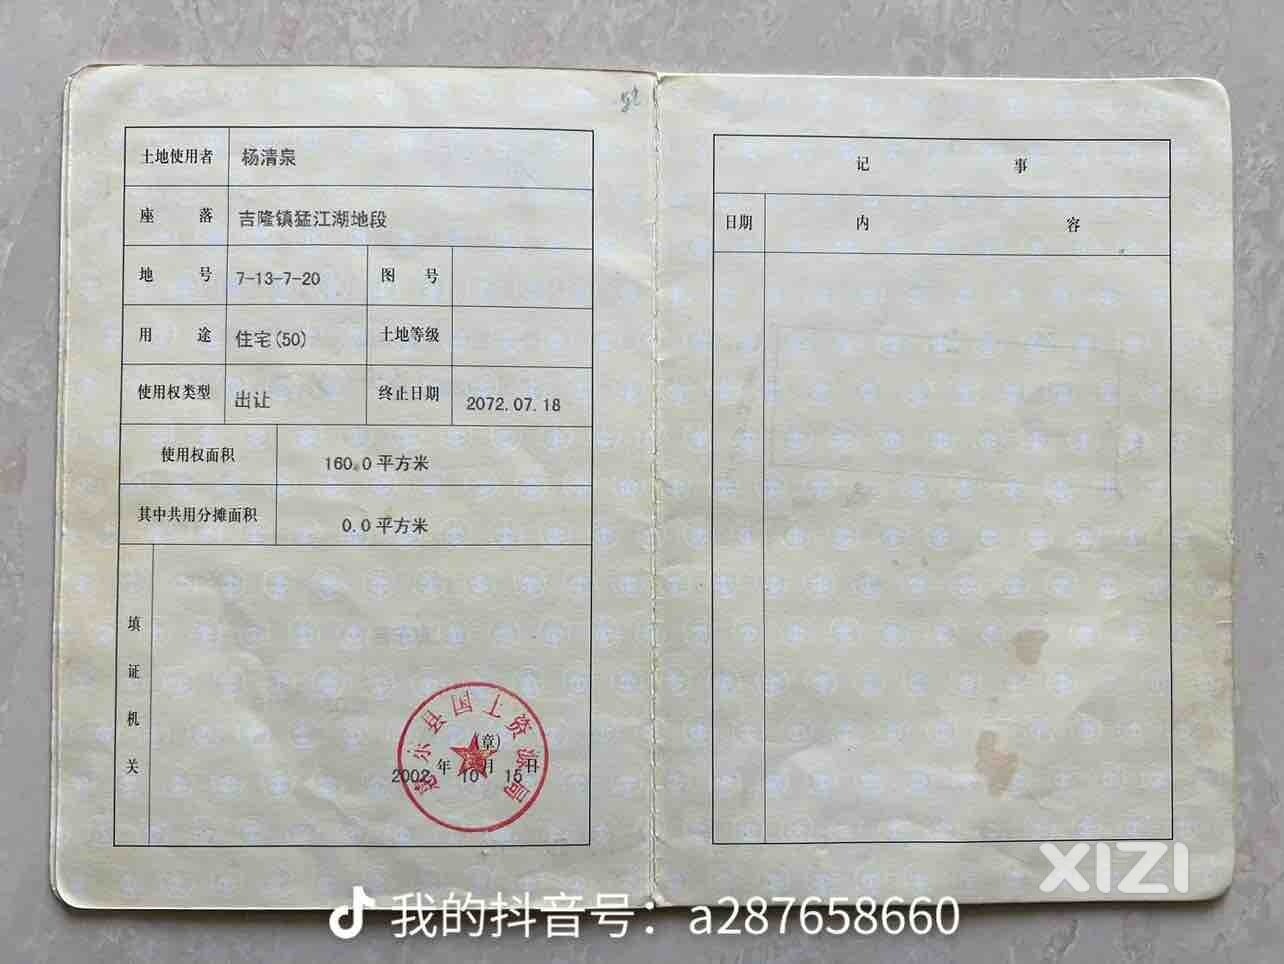 52
土地使用者 杨清泉
座落 吉隆镇猛江湖地段
地号 7-13-7-20 图号
用途 住宅(50) 土地等级
使用权类型 出让 终止日期 2072.07.18
使用权面积 160.0平方米
其中共用分摊面积 0.0平方米
填证机关
惠东县国土资源局
(章)
2002年10月15日
记事
日期 内容
XIZI
我的抖音号：a287658660